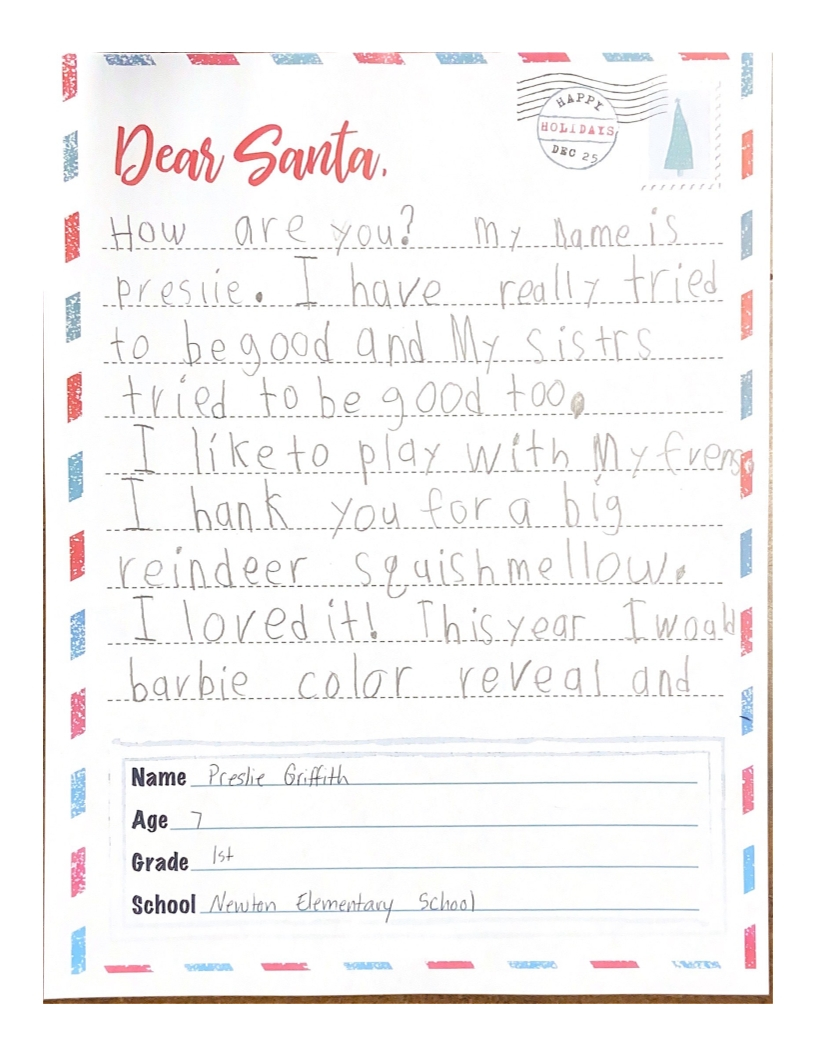 HAPPY
HOLIDAYS
DEC 25
Dear Santa,
How are you? My Name is
preslie. I have really tried
to be good and My sistrs
tried to be good too.
I like to play with My frens.
I hank you for a big
reindeer squishmellow.
I loved it! This year I woald
barbie color reveal and
Name Preslie Griffith
Age 7
Grade 1st
School Newton Elementary School